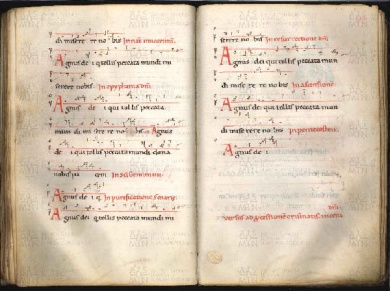 di misere re no bis In nat innocentum
Agnus dei qui tollis peccata mundi mi
serere nobis In epyphania dni
Agnus de i qui tol lis peccata
mun di mi se re re no bis Agnus
de i qui tollis peccata mundi dona
nobis pa cem
Agnus de i q In purificatione s marie
Agnus dei q tollis peccata mundi mi
serere no bis In resurrectione dni
Agnus dei qui tollis peccata mun
di mise re re no bis In ascensione
Agnus de i qui tollis peccata mun
di mise re re no bis In pentecosten
Agnus de i